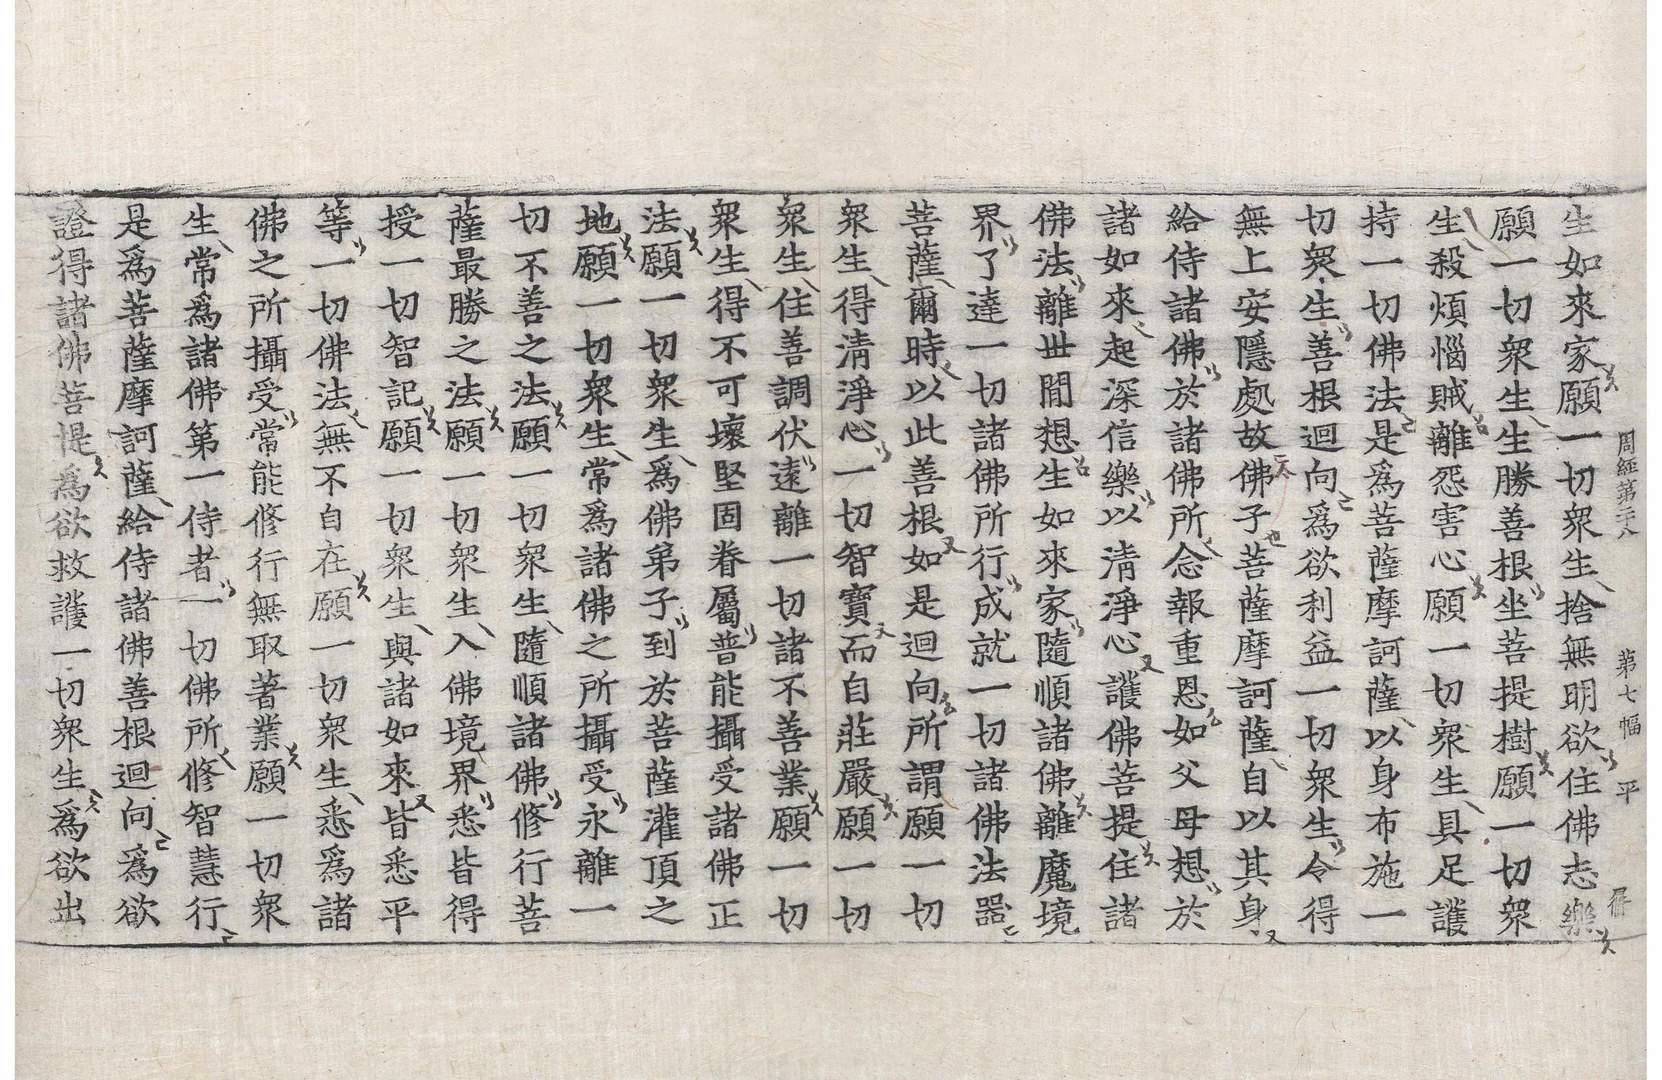 周經第二十八 第七幅 平
生如來家願一切衆生捨無明欲住佛志樂
願一切衆生生勝善根坐菩提樹願一切衆
生殺煩惱賊離怨害心願一切衆生具足護
持一切佛法是爲菩薩摩訶薩以身布施一
切衆生善根迴向爲欲利益一切衆生令得
無上安隱處故佛子菩薩摩訶薩自以其身
給侍諸佛於諸佛所念報重恩如父母想於
諸如來起深信樂以清淨心護佛菩提住諸
佛法離世間想生如來家隨順諸佛離魔境
界了達一切諸佛所行成就一切諸佛法器
菩薩爾時以此善根如是迴向所謂願一切
衆生得清淨心一切智寶而自莊嚴願一切
衆生住善調伏遠離一切諸不善業願一切
衆生得不可壞堅固眷屬普能攝受諸佛正
法願一切衆生爲佛弟子到於菩薩灌頂之
地願一切衆生常爲諸佛之所攝受永離一
切不善之法願一切衆生隨順諸佛修行菩
薩最勝之法願一切衆生入佛境界悉皆得
授一切智記願一切衆生與諸如來皆悉平
等一切佛法無不自在願一切衆生悉爲諸
佛之所攝受常能修行無取著業願一切衆
生常爲諸佛第一侍者一切佛所修智慧行
是爲菩薩摩訶薩給侍諸佛善根迴向爲欲
證得諸佛菩提爲欲救護一切衆生爲欲出